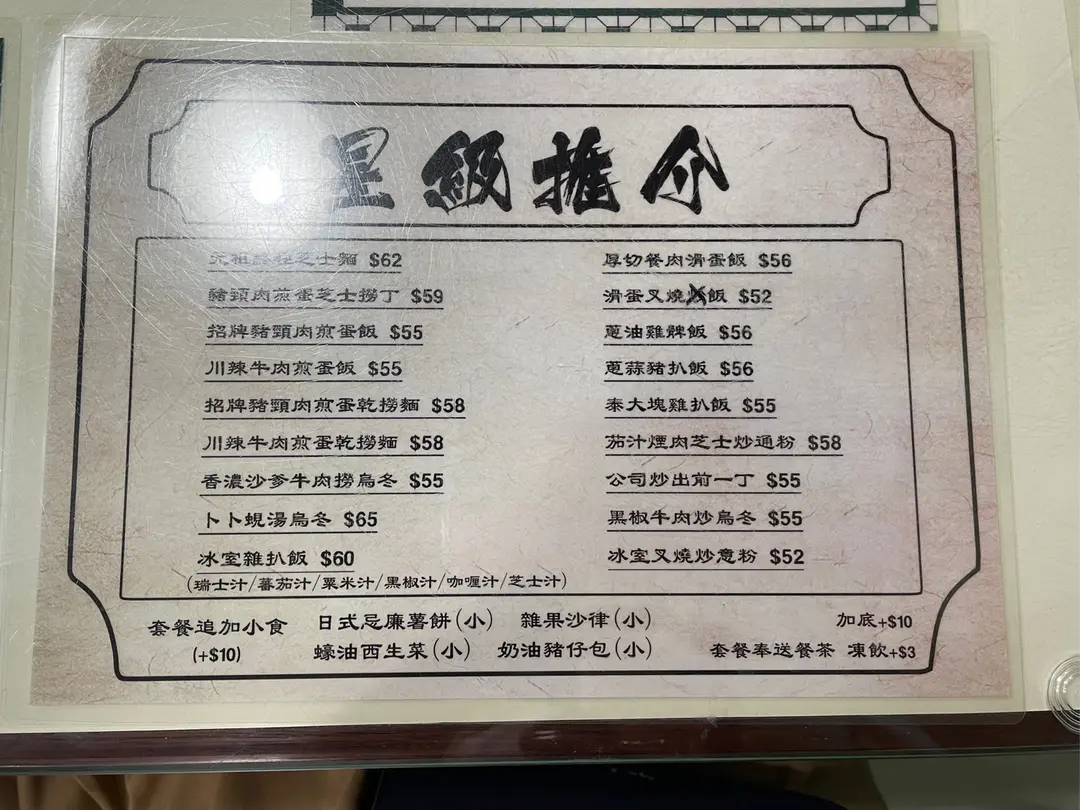 星級推介
芝士麵 $62
豬頸肉煎蛋芝士撈丁 $59
招牌豬頸肉煎蛋飯 $55
川辣牛肉煎蛋飯 $55
招牌豬頸肉煎蛋乾撈麵 $58
川辣牛肉煎蛋乾撈麵 $58
香濃沙爹牛肉撈烏冬 $55
卜卜蜆湯烏冬 $65
冰室雜扒飯 $60
(瑞士汁/蕃茄汁/粟米汁/黑椒汁/咖喱汁/芝士汁)
厚切餐肉滑蛋飯 $56
滑蛋叉燒飯 $52
蔥油雞髀飯 $56
蔥蒜豬扒飯 $56
泰大塊雞扒飯 $55
茄汁煙肉芝士炒通粉 $58
公司炒出前一丁 $55
黑椒牛肉炒烏冬 $55
冰室叉燒炒意粉 $52
套餐追加小食
(+$10)
日式忌廉薯餅(小) 雜果沙律(小)
蠔油西生菜(小) 奶油豬仔包(小)
加底+$10
套餐奉送餐茶 凍飲+$3